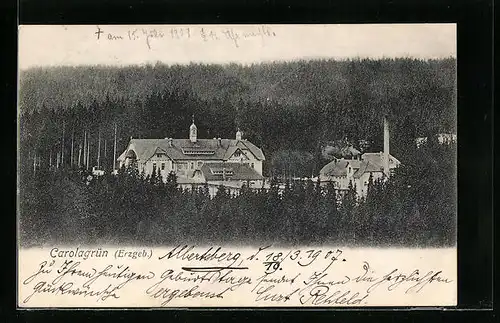 † am 15. Juli 1909
Carolagrün (Erzgeb.) Albertsberg, d. 18/3. 1907
19.
Zu Ihrem heutigen Geburtstage sendet Ihnen die herzlichsten
Glückwünsche Ihr ergebenst Curt Rehfeld